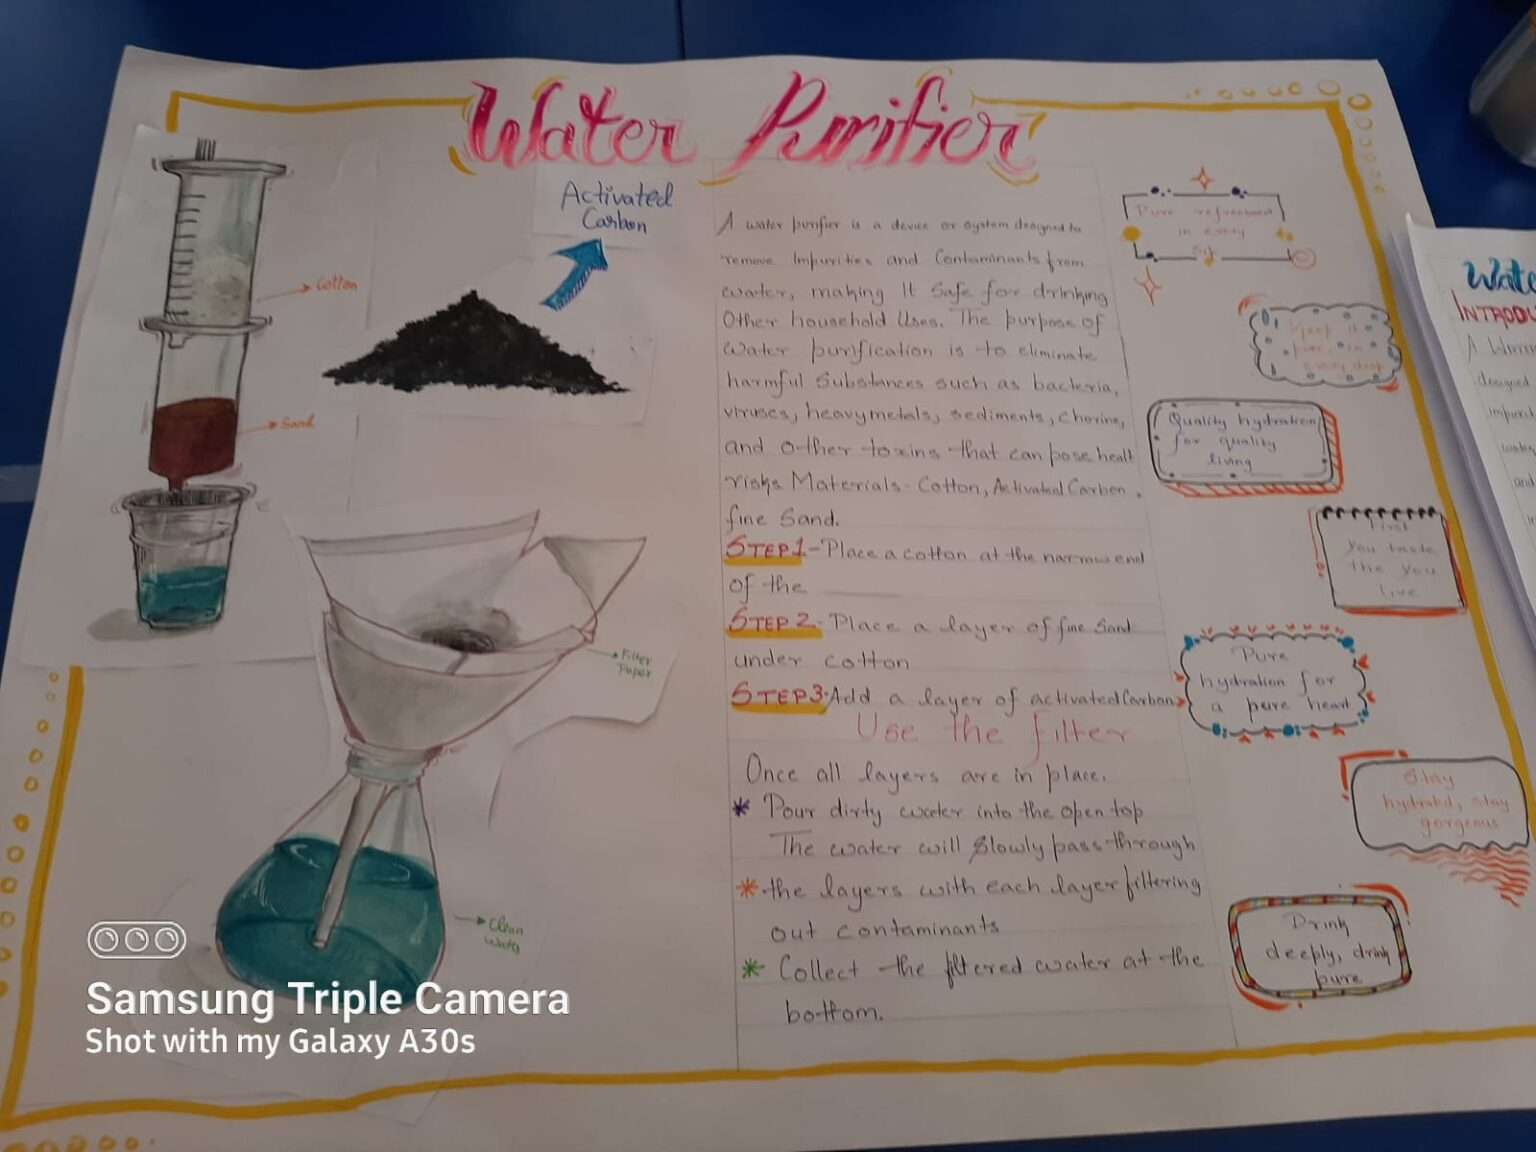 Water Purifier
Activated
Carbon
Cotton
Sand
Filter
Paper
Clean
A water purifier is a device or system designed to
remove impurities and Contaminants from
water, making It Safe for drinking
Other household Uses. The purpose of
Water purification is to eliminate
harmful Substances such as bacteria,
viruses, heavymetals, sediments, Chorine,
and other toxins that can pose healt
risks Materials - Cotton, Activated Carben.
fine Sand.
STEP1-Place a cotton at the narrow end
of the
STEP 2-Place a layer of fine Sand
under cotton
STEP3-Add a layer of activated Carbon
Use the filter
Once all layers are in place.
* Pour dirty water into the open top
The water will Slowly pass through
* the layers with each layer filtering
out contaminants
* Collect the filtered water at the
bottom.
Pure refreshment
in every
Sip
Keep it
pure, in
every drop
Quality hydration
for quality
living
First
you taste
the you
live
Pure
hydration for
a pure heart
Stay
hydratd, stay
gorgeous
Drink
deeply, drink
pure
Wate
INTRODU
A Water
designed
impuri
wate
and
Samsung Triple Camera
Shot with my Galaxy A30s